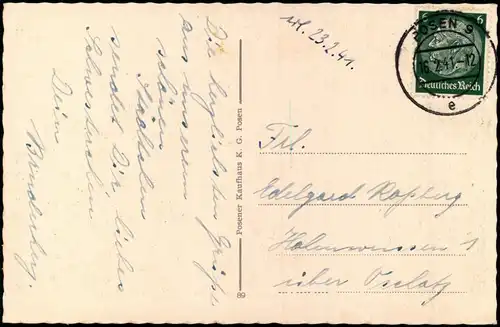 erl. 23.2.41.
POSEN 9
.2.41.-12
e
6
Deutsches Reich
Die herzlichsten Grüße
aus unserem
schönen
Städtchen
sendet Dir, liebes
Schwesterchen
Dein
Posener Kaufhaus K. G. Posen
89
Frl.
Edelgard Roßberg
Hohenwussen
über Oschatz